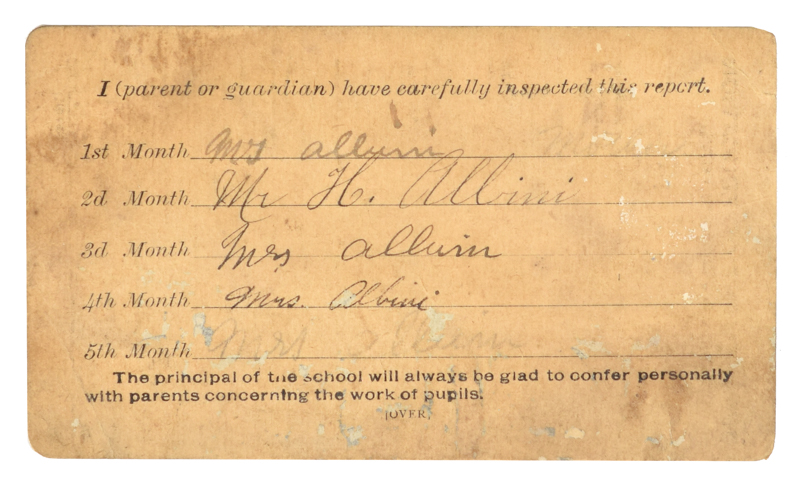 I (parent or guardian) have carefully inspected this report.
1st Month Mrs Albini
2d Month Mr H. Albini
3d Month Mrs Albini
4th Month Mrs. Albini
5th Month Mrs
The principal of the school will always be glad to confer personally
with parents concerning the work of pupils.
[OVER]